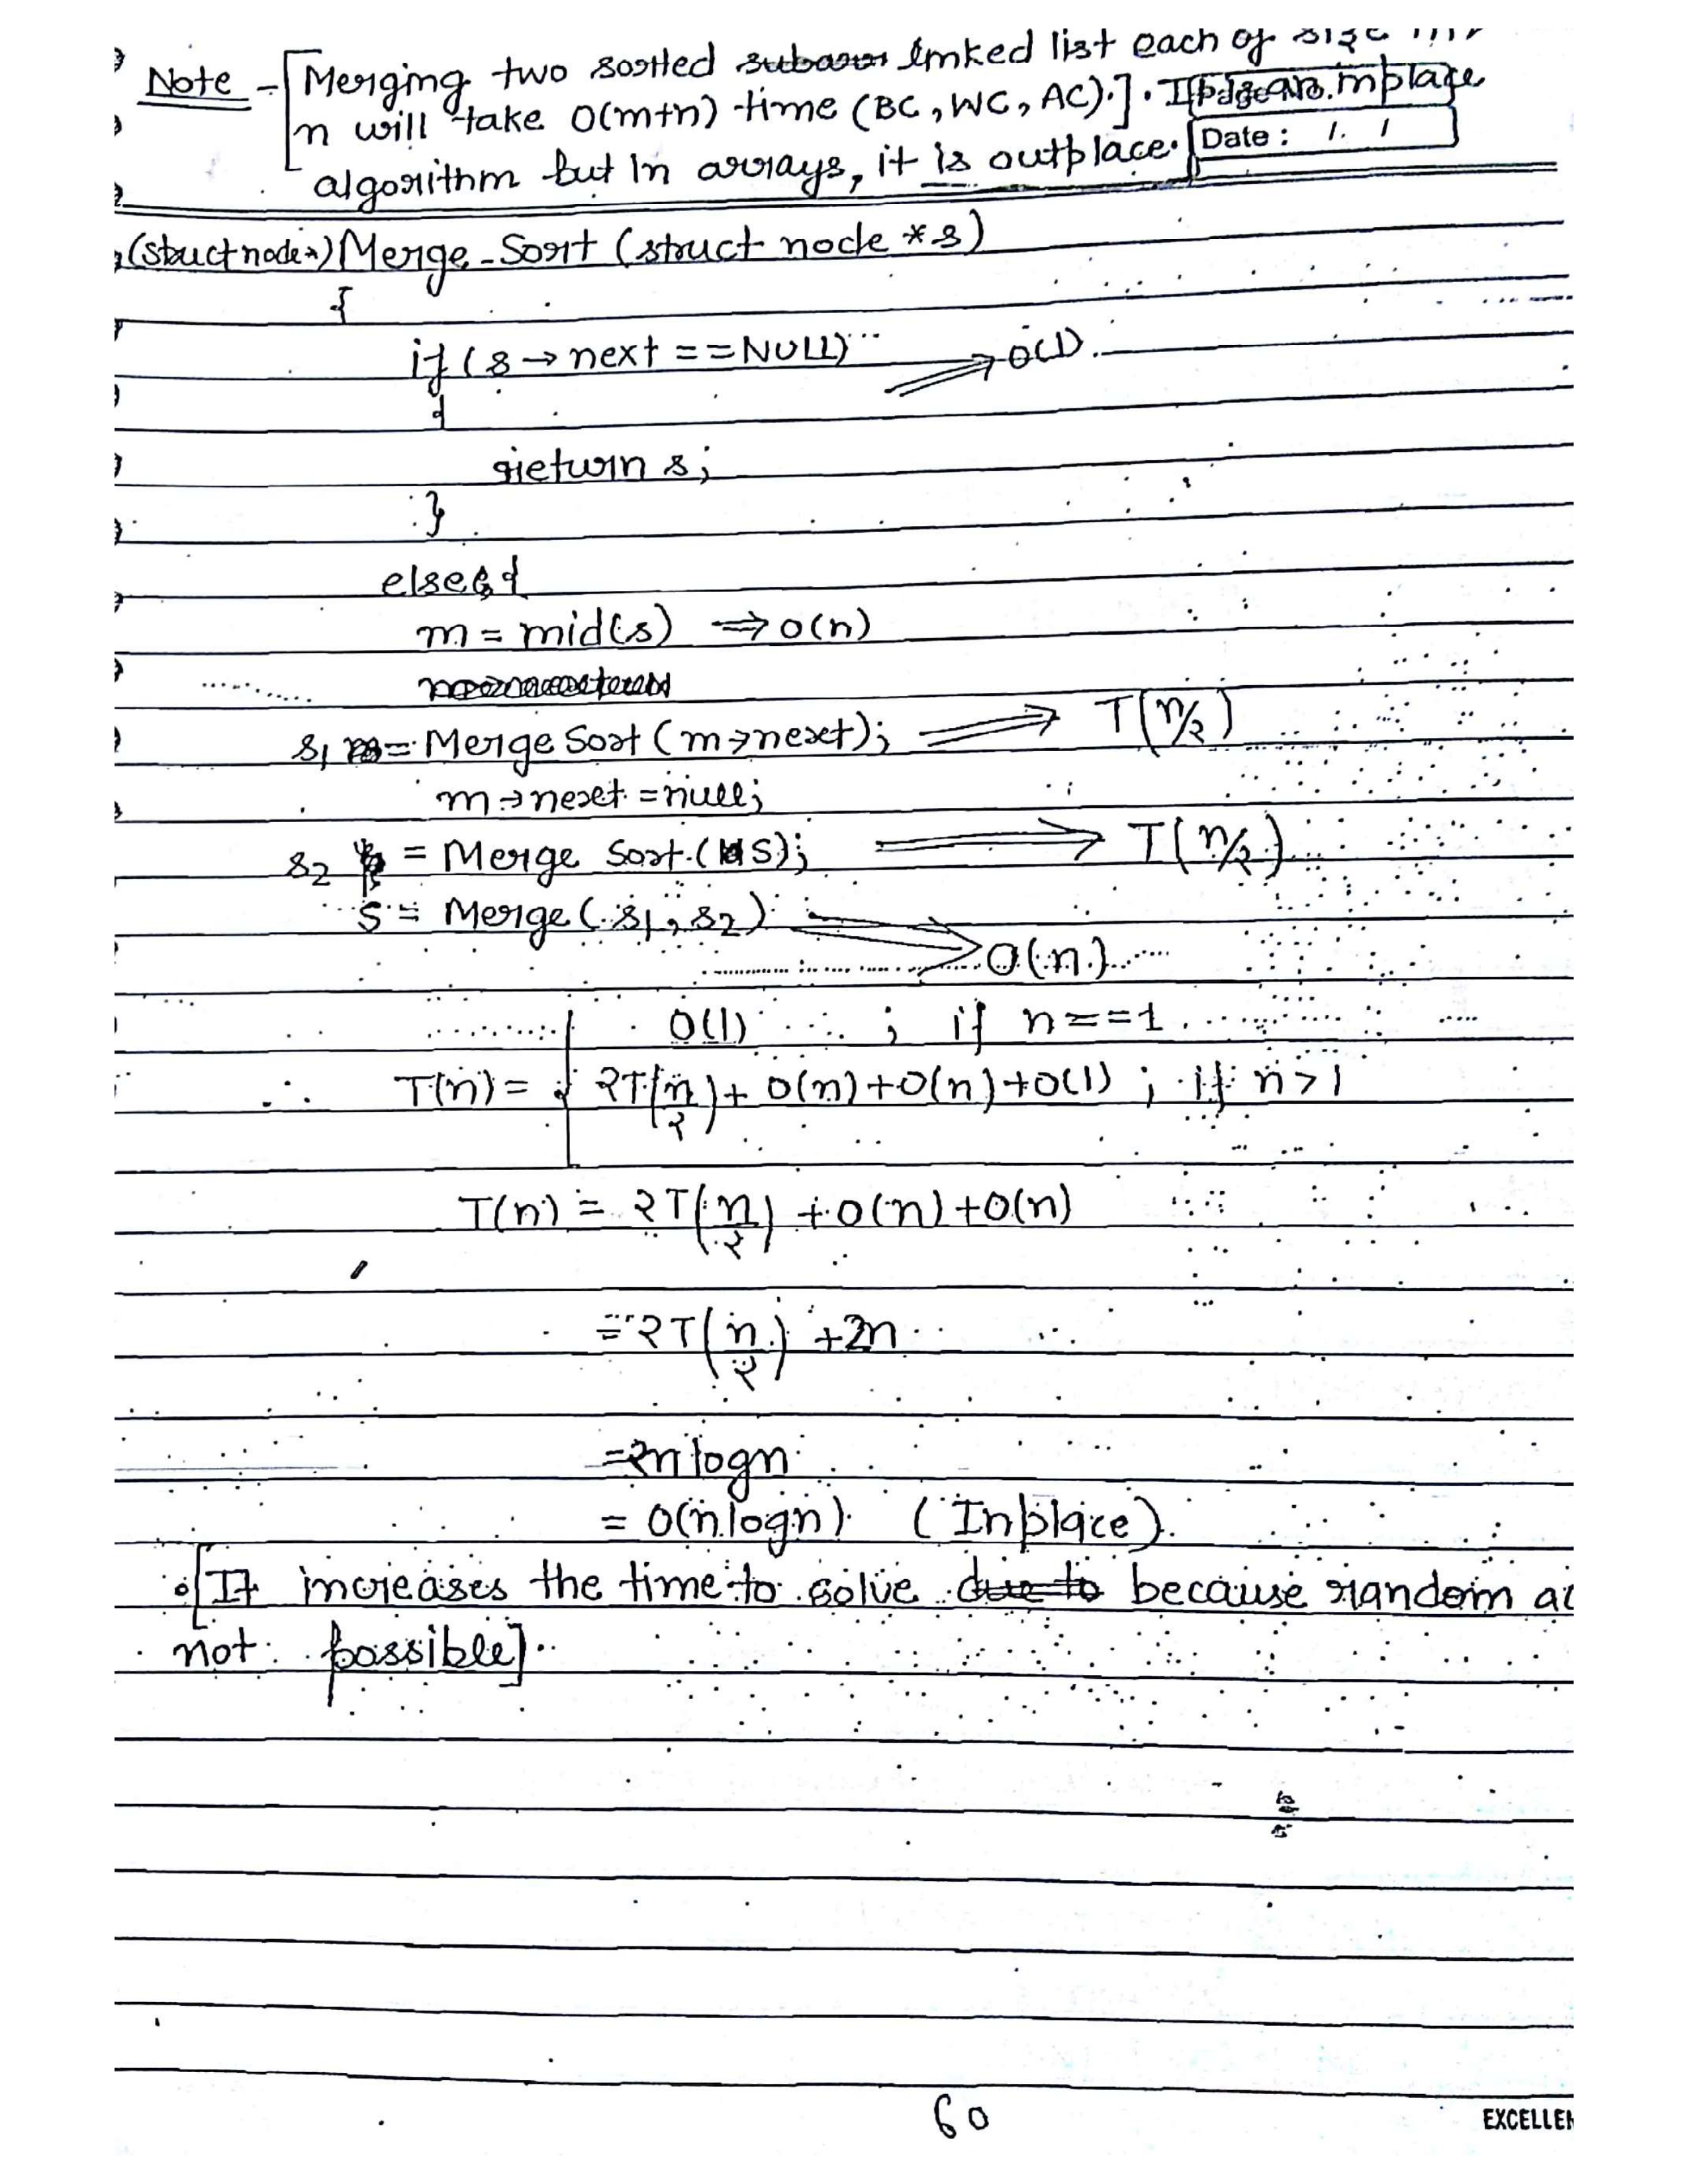 Note - [Merging two sorted linked list each of size
n will take O(m+n) time (BC, WC, AC).]. It is an inplace
Page No.
Date : / /
algorithm but in arrays, it is outplace.
(struct node*) Merge-Sort (struct node *s)
{
if (s → next == NULL) ⇒ O(1).
{
return s;
}
else {
m = mid(s) ⇒ O(n)
s1 = Merge Sort (m→next); ⇒ T(n/2)
m→next = null;
s2 = Merge Sort (S); ⇒ T(n/2)
S = Merge (s1, s2) ⇒ O(n)
O(1) ; if n==1
∴ T(n) = { 2T(n/2) + O(n) + O(n) + O(1) ; if n>1
T(n) = 2T(n/2) + O(n) + O(n)
= 2T(n/2) + 2n
= 2n logn
= O(n logn) (Inplace).
• [It increases the time to solve due to because random
not possible].
60
EXCELLEN